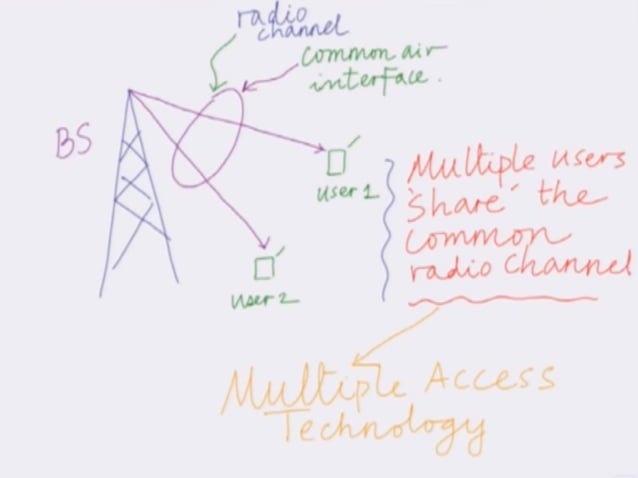 radio
channel
common air
interface.
BS
user 1
user 2
Multiple users
'share' the
common
radio channel
Multiple Access
Technology